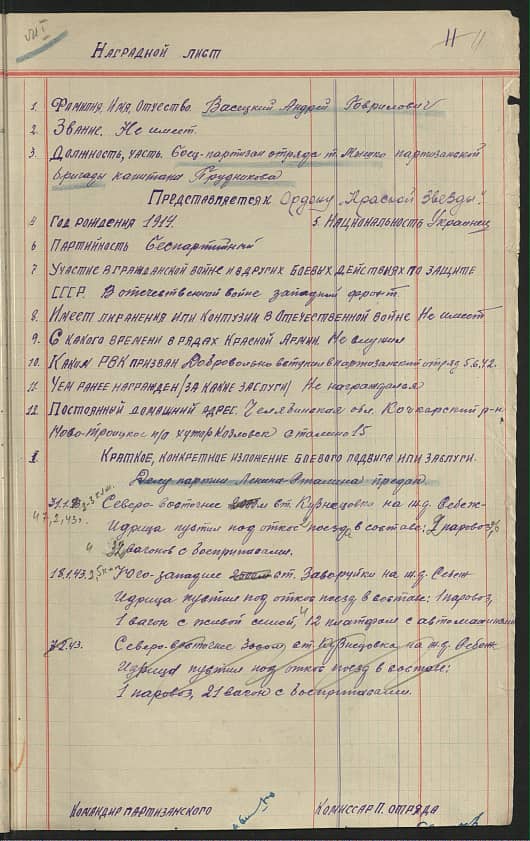 VII
11 11
Наградной лист
1. Фамилия, Имя, Отчество. Васецкий Андрей Гаврилович
2. Звание. Не имеет.
3. Должность, часть. Боец-партизан отряда т. партизанской
бригады капитана Прудникова
Представляется к Ордену „Красной Звезды".
4 Год рождения 1914. 5. Национальность Украинец
6 Партийность беспартийный
7 Участие в гражданской войне и в других боевых действиях по защите
СССР. В отечественной войне западный фронт.
8. Имеет ли ранения или контузии в Отечественной войне Не имеет
9. С какого времени в рядах Красной Армии. Не служил
10. Каким РВК призван Добровольно вступил в партизанский отряд 5.6.42.
11. Чем ранее награжден /за какие заслуги/ Не награждался
12. Постоянный домашний адрес. Челябинская обл. Кочкарский р-н
Ново-Троицкое п/о хутор Козловск Сталино 15
I Краткое, конкретное изложение боевого подвига или заслуги.
Делу партии Ленина-Сталина предан
31.1. Северо-восточнее ст. Кузнецовка на ж.д. Себеж-
и 7.2.43г. Идрица пустил под откос 2 поезда в составе: 2 паровоза
и вагонов с боеприпасами.
18.1.43. Юго-западнее ст. Заваруйки на ж.д. Себеж
Идрица пустил под откос поезд в составе: 1 паровоз,
1 вагон с живой силой, и 12 платформ с автомашинами
7.2.43. Северо-восточнее ст. Кузнецовка на ж.д. Себеж
Идрица пустил под откос поезд в составе:
1 паровоз, 21 вагон с боеприпасами.
Командир партизанского Комиссар П. отряда